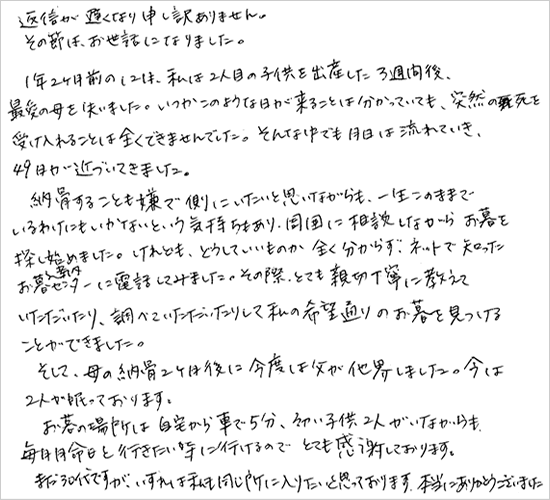 返信が遅くなり申し訳ありません。
その節は、お世話になりました。
1年2ヶ月前の12月、私は2人目の子供を出産した3週間後、
最愛の母を失いました。いつかこのような日が来ることは分かっていても、突然の死を
受け入れることは全くできませんでした。そんな中でも月日は流れていき、
49日が近づいてきました。
納骨することも嫌で側にいたいと思いながらも、一生このままで
いるわけにもいかないという気持ちもあり、周囲に相談しながらお墓を
探し始めました。けれども、どうしていいものか全く分からず、ネットで知った
お墓案内センターに電話してみました。その際、とても親切丁寧に教えて
いただいたり、調べていただいたりして私の希望通りのお墓を見つける
ことができました。
そして、母の納骨2ヶ月後に今度は父が他界しました。今は
2人が眠っております。
お墓の場所は自宅から車で5分、幼い子供2人がいながらも
毎月月命日と行きたい時に行けるのでとても感謝しております。
まだ30代ですが、いずれは私も同じ所に入りたいと思っております。本当にありがとうございました